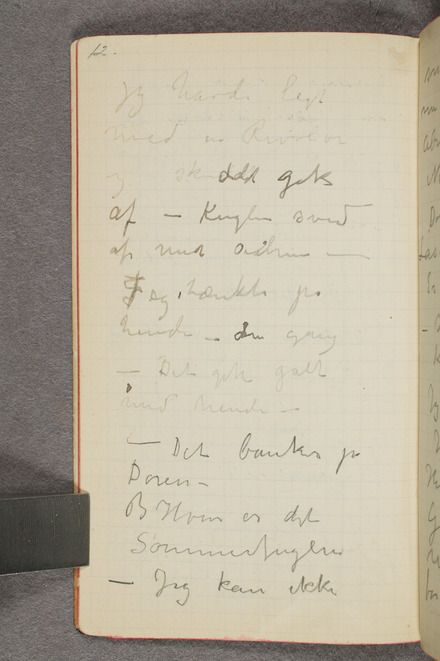 12.
Jeg havde legt
med en Revolver
og skuddet gik
af – Kuglen svid
af med
Jeg tænkte på
hende – den gang
– Det gik galt
med hende –
– Det banker på
Døren –
B Hvem er det
Sommerfuglen
– Jeg kan ikke